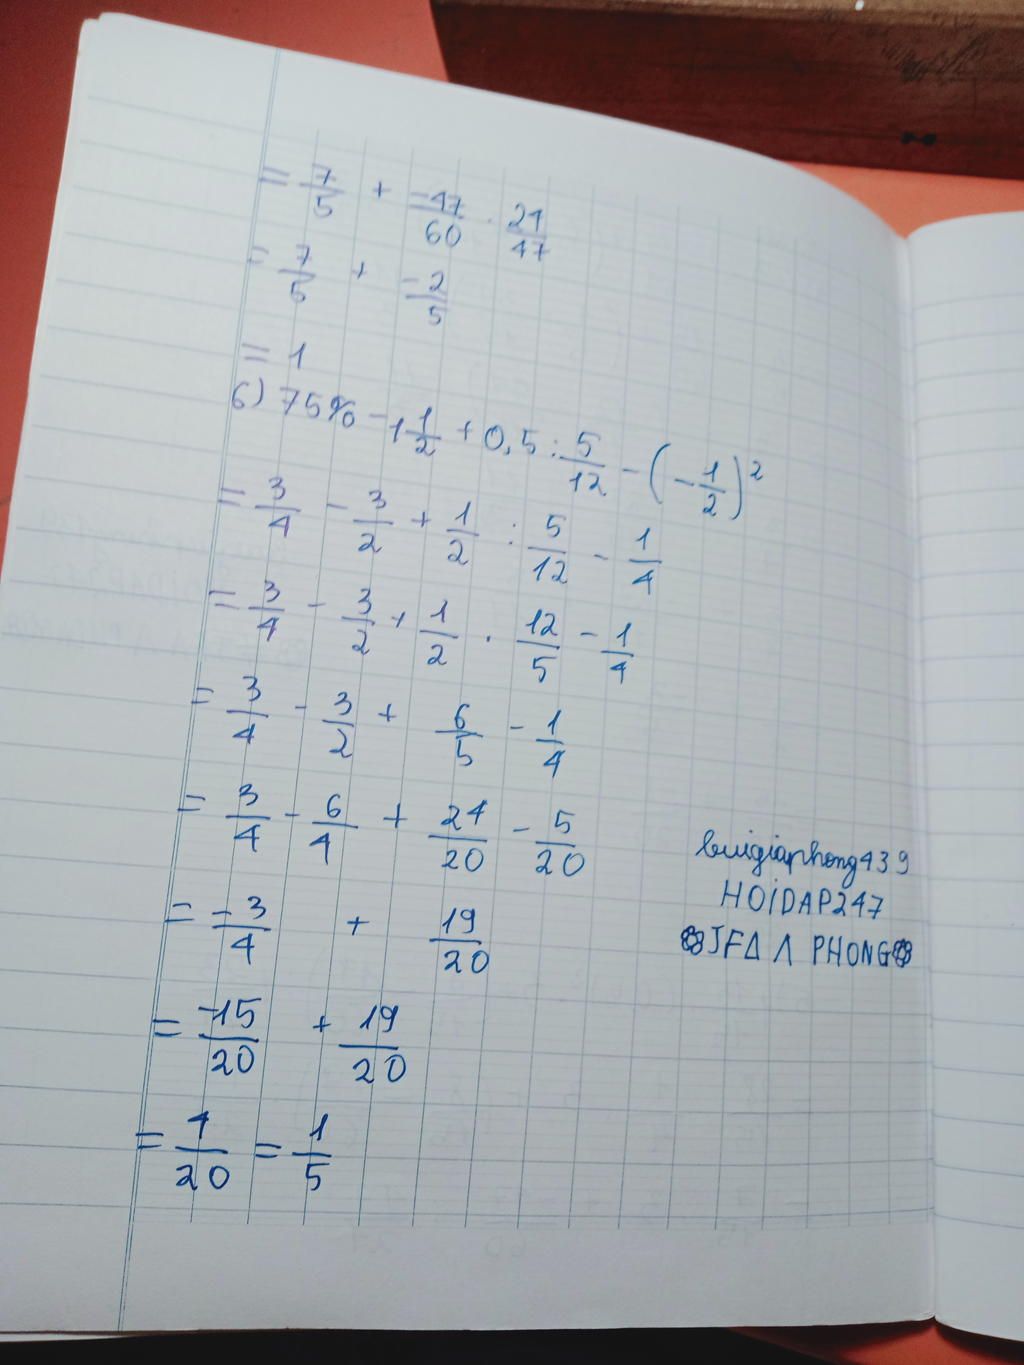 = 7/5 + -47/60 . 24/47
= 7/5 + -2/5
= 1
6) 75% - 1 1/2 + 0,5 : 5/12 - (-1/2)²
= 3/4 - 3/2 + 1/2 : 5/12 - 1/4
= 3/4 - 3/2 + 1/2 . 12/5 - 1/4
= 3/4 - 3/2 + 6/5 - 1/4
= 3/4 - 6/4 + 24/20 - 5/20
= -3/4 + 19/20
= -15/20 + 19/20
= 4/20 = 1/5
buigiaphong439
HOIDAP247
JFA Λ PHONG